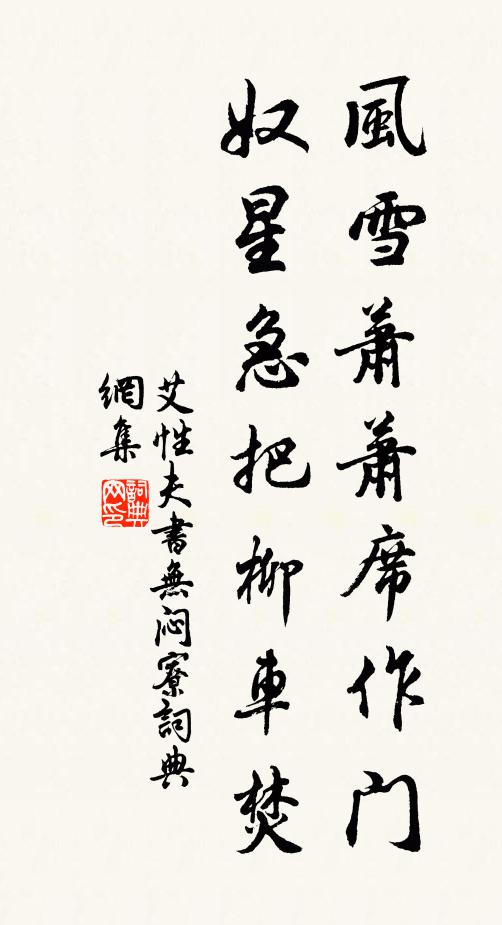 風雪蕭蕭席作門
奴星急把柳車焚
艾性夫書無悶寮詞典
網集
詞典網印